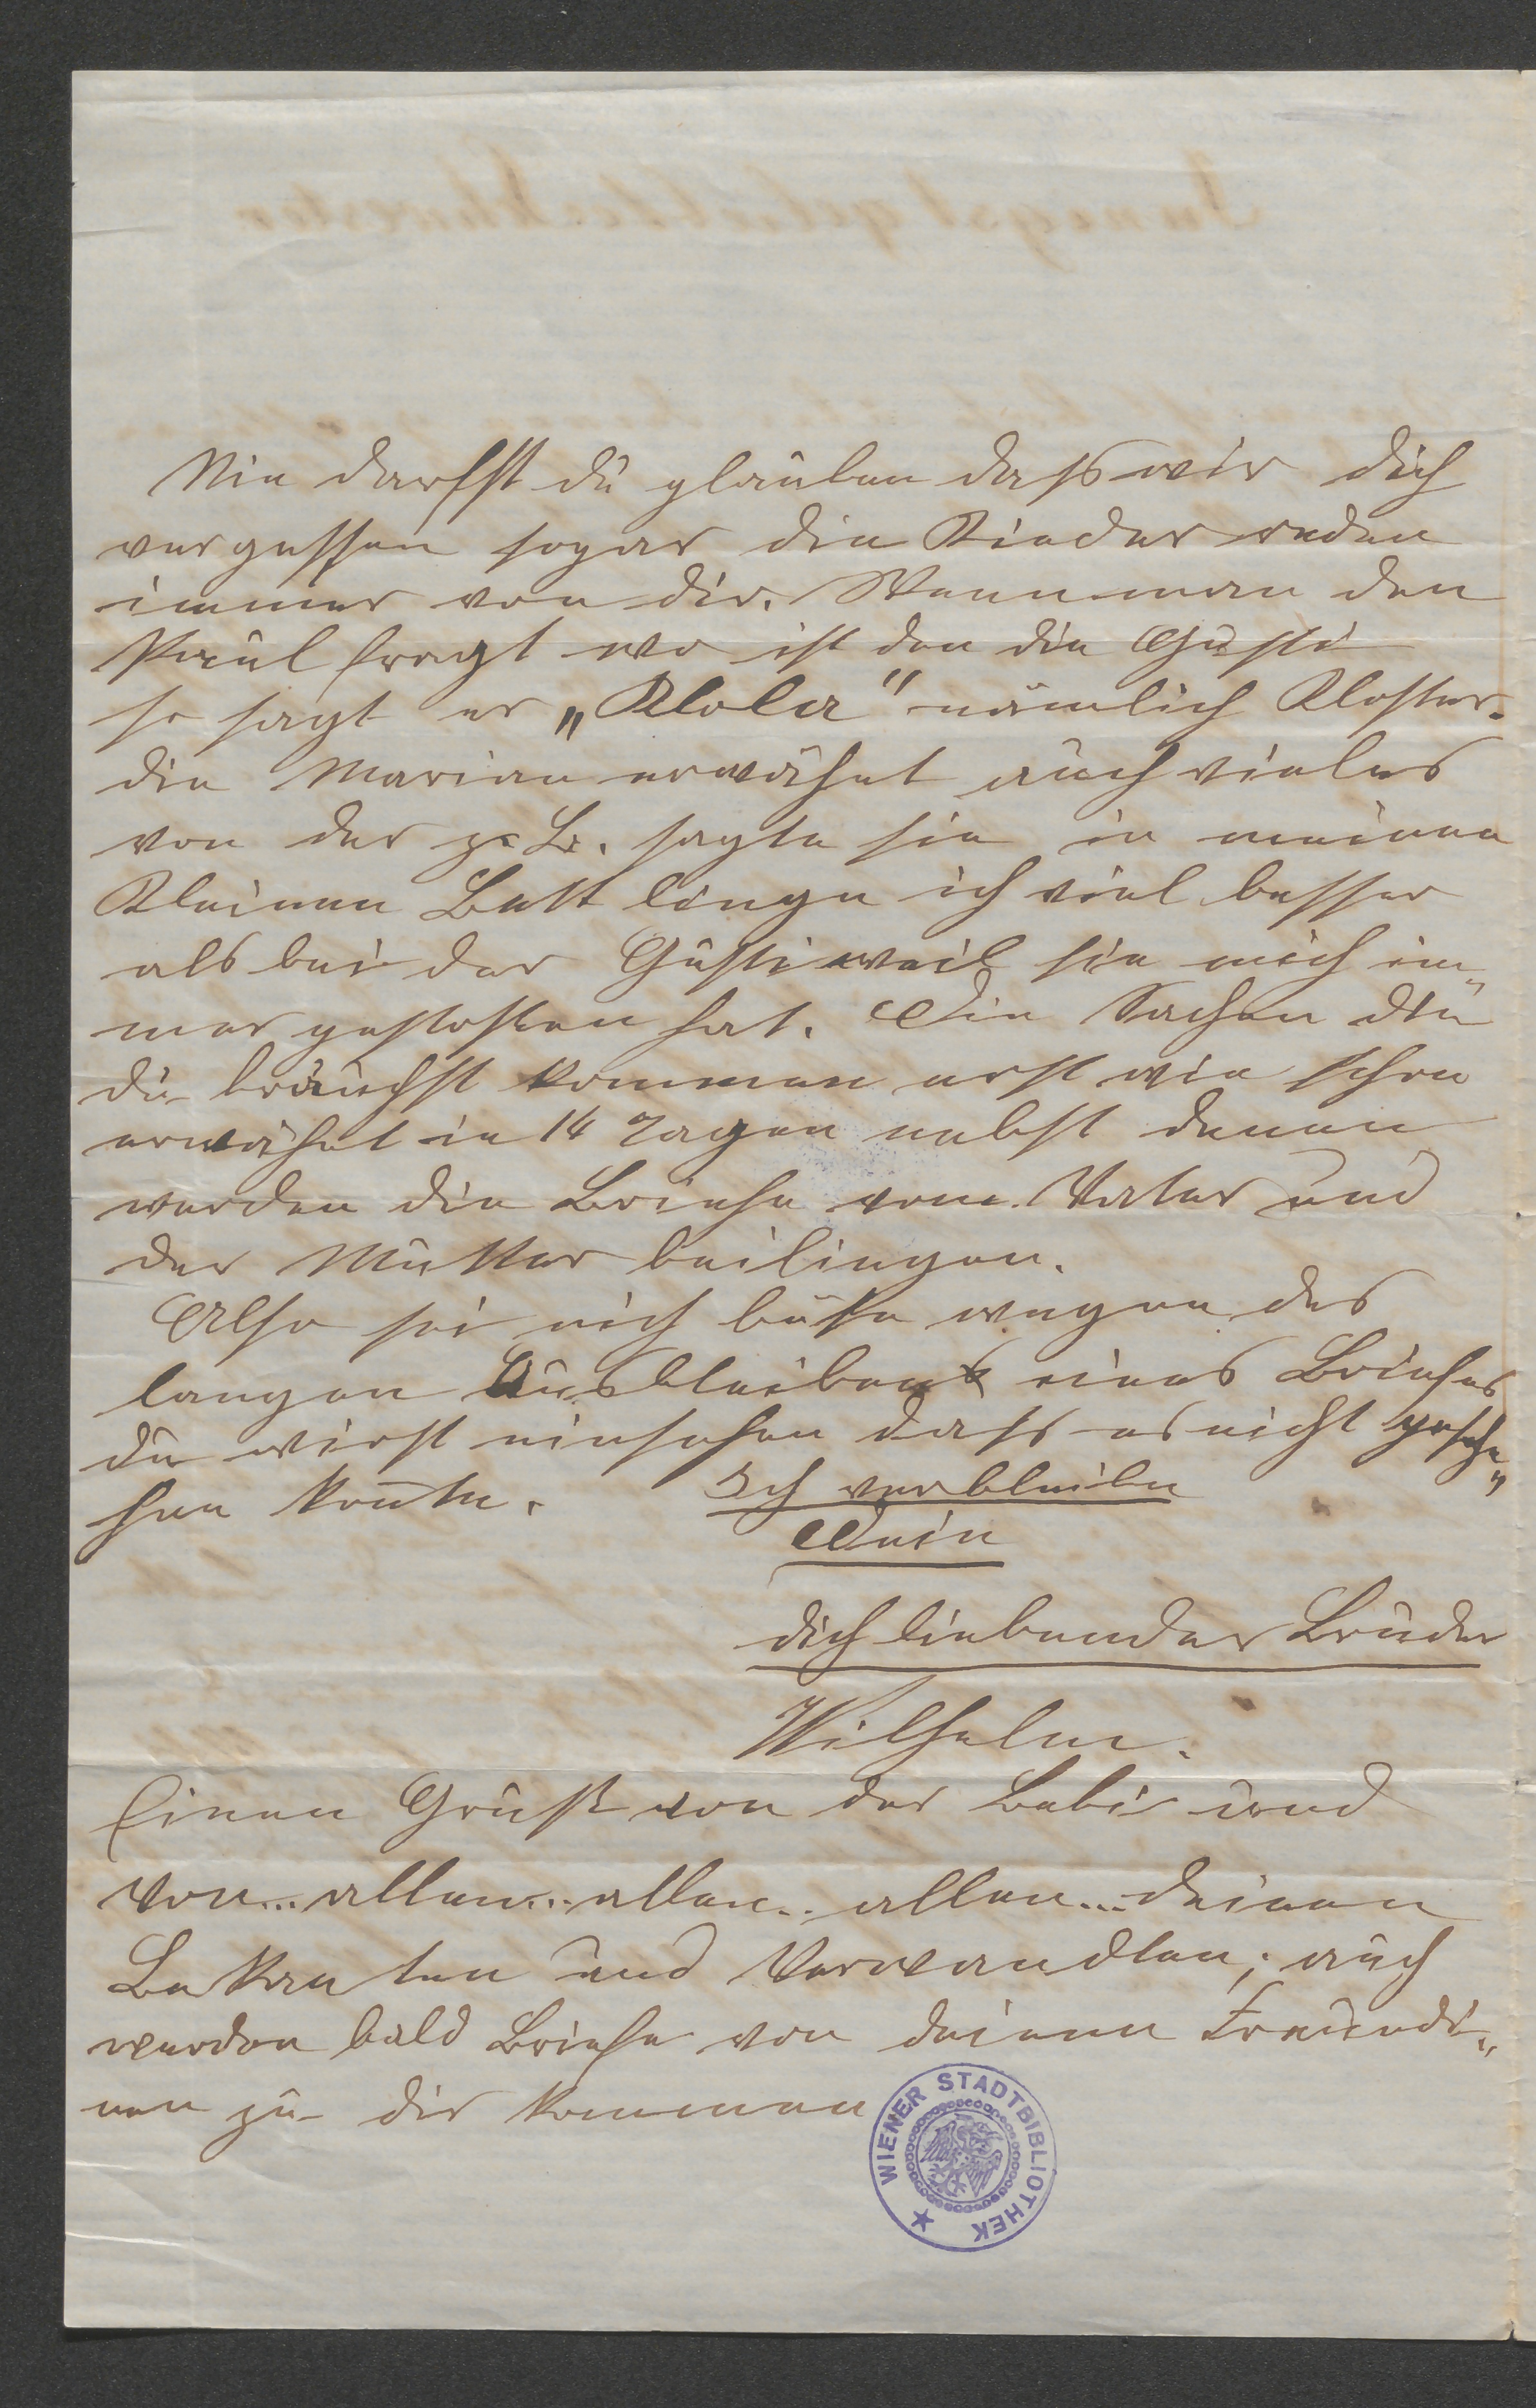 Nie darfst du glauben dass wir dich
vergessen sogar die Kinder reden
immer von dir. Wenn man den
Paul fragt wo ist den die Gusti
so sagt er „Klola“ nämlich Kloster.
die Marian erwähnt auch vieles
von der z. B. sagte sie in meinen
Kleinen Bett liege ich viel besser
als bei der Gusti weil sie mich im„
mer gestoßen hat. Die Sachen die
du brauchst kommen erst wie schon
erwähnt in 14 Tagen nebst denen
werden die Briefe vom Vater und
der Mutter beiliegen.
Also sei nich böse wegen des
langen Ausbleibens eines Briefes
du wirst einsehen dass es nicht gesche„
hen konte. Ich verbleibe
Dein
dich liebender Bruder
Wilhelm.
Einen Gruß von der Babi und
von... allen... allen.. allen... deinen
Bekanten und Verwandten; auch
werden bald Briefe von deinen Freundi„
nen zu dir kommen
WIENER STADTBIBLIOTHEK